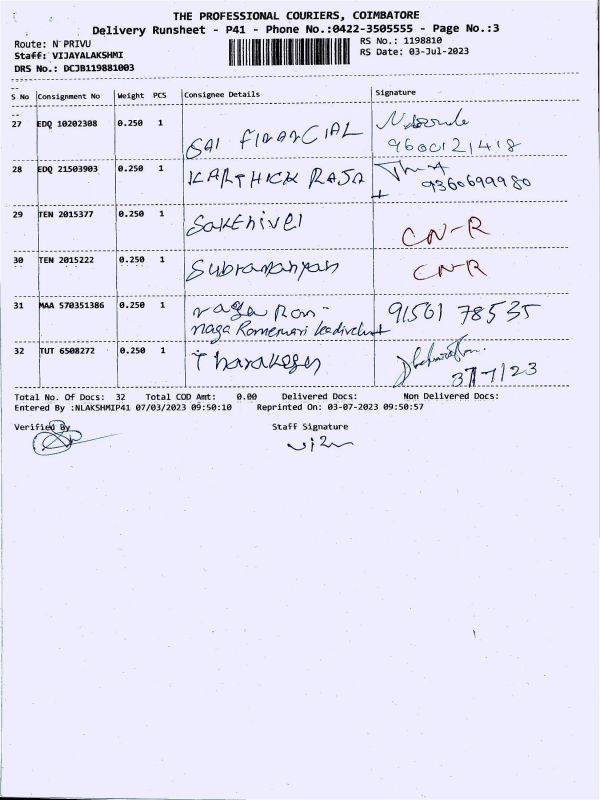 THE PROFESSIONAL COURIERS, COIMBATORE
Delivery Runsheet - P41 - Phone No.:0422-3505555 - Page No.:3
Route: N PRIVU
RS No.: 1198810
Staff: VIJAYALAKSHMI
RS Date: 03-Jul-2023
DRS No.: DCJB119881003
S No Consignment No Weight PCS Consignee Details Signature
27 EDQ 10202308 0.250 1 SAI FINANCIAL
9600121418
28 EDQ 21503903 0.250 1 KARTHICK RAJA
9360699980
29 TEN 2015377 0.250 1 Sakthivel CN-R
30 TEN 2015222 0.250 1 Subramanyan CN-R
31 MAA 570351386 0.250 1 naga 91561 78535
naga
32 TUT 6508272 0.250 1
3/7/23
Total No. Of Docs: 32 Total COD Amt: 0.00 Delivered Docs: Non Delivered Docs:
Entered By :NLAKSHMIP41 07/03/2023 09:50:10 Reprinted On: 03-07-2023 09:50:57
Verified By Staff Signature